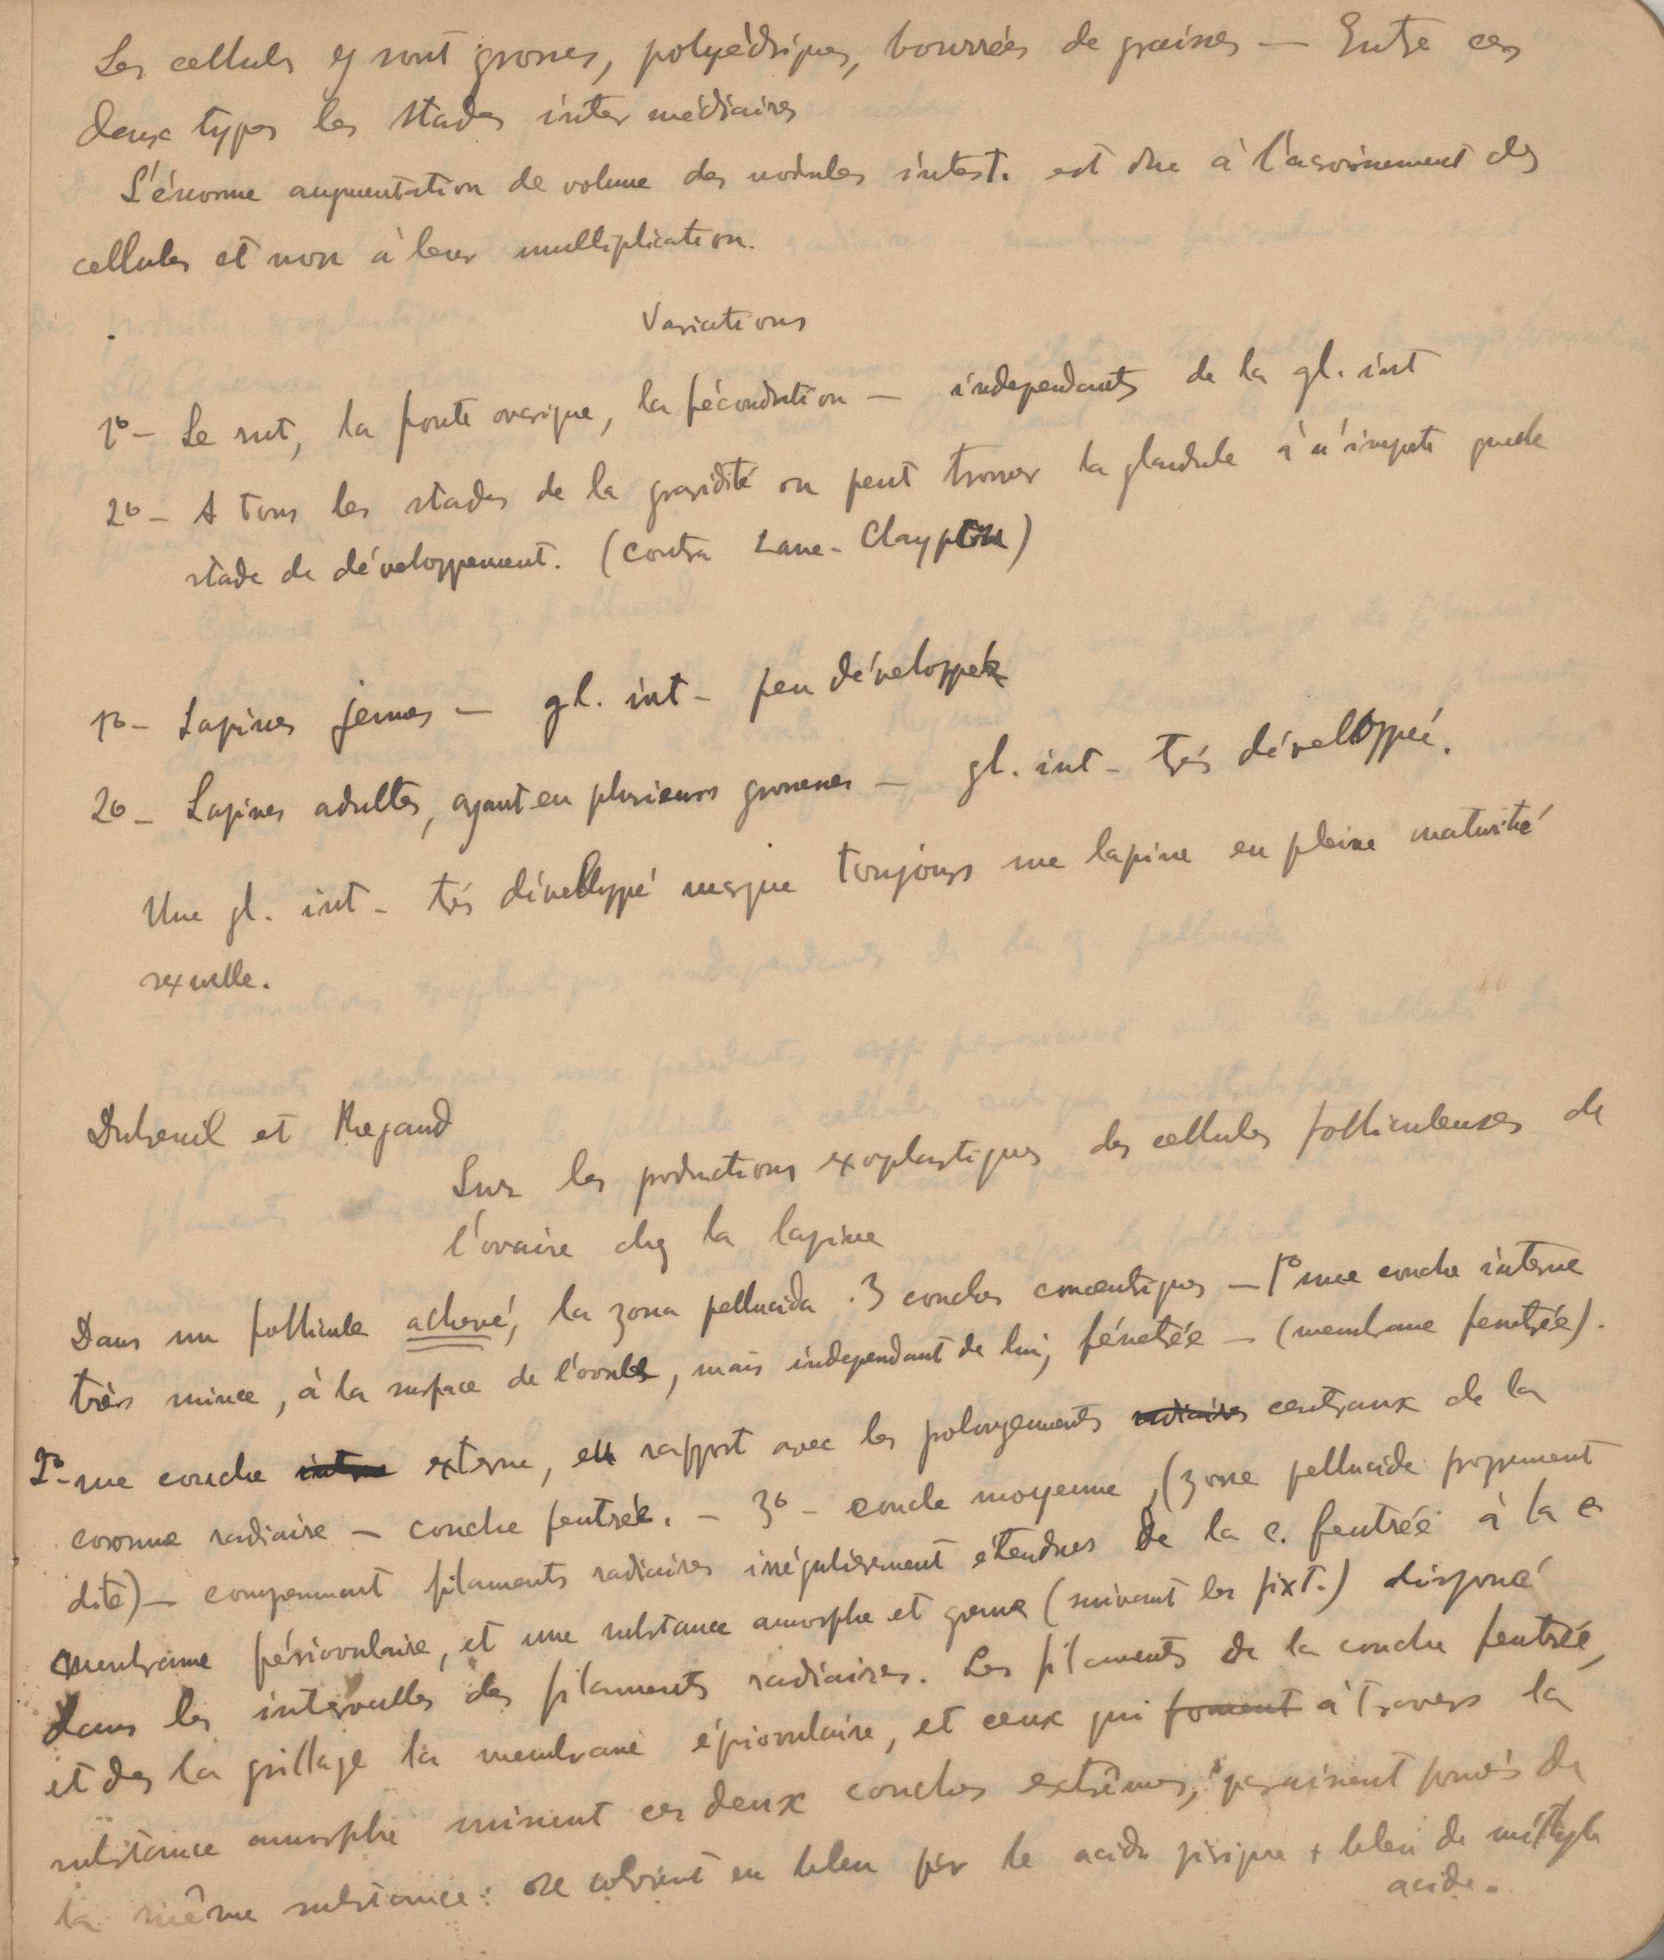 Les cellules y sont grosses, polyédriques, bourrées de graines — Entre ces
deux types les stades inter médiaires
L'énorme augmentation de volume des nodules intest. est due à l'accroissement des
cellules et non à leur multiplication.
Variations
1º — Le rut, la ponte ovarique, la fécondation — independants de la gl. int
2º — A tous les stades de la gravidité on peut trouver la glandule à n'importe quele
stade de développement. (contra Lane-Claypton)
1º — Lapines jeunes — gl. int — peu développée
2º — Lapines adultes, ayant eu plusieurs grosseses — gl. int — trés développée.
Une gl. int — trés développé marque toujours une lapine en pleine maturité
sexuelle.
Dubreuil et Regaud
Sur les productions exoplastiques des cellules folliculeuses de
l'ovaire chez la lapine
Dans un follicule achevé, la zona pellucida . 3 couches concentriques — 1º une couche interne
très mince, à la surface de l'ovule, mais independant de lui, fénétrée — (membrane fenetrée).
2º — une couche interne externe, en rapport avec les prolongements radiaires centraux de la
coronne radiaire — couche feutrée. — 3º — couche moyenne, (zone pellucide proprement
dite) — comprennant filaments radiaires irrégulièrement étendues de la c. feutrée à la
membrane périovulaire, et une substance amorphe et (suivant les fixt.) disposé
dans les intervalles des filaments radiaires. Les filaments de la couche feutrée,
et des la grillage la membrane épiovulaire, et ceux qui forment à travers la
substance amorphe unissent ces deux couches extrêmes, paraissent formés de
la même substance: se colorient en bleu par le acide picrique + bleu de méthyle
acide.